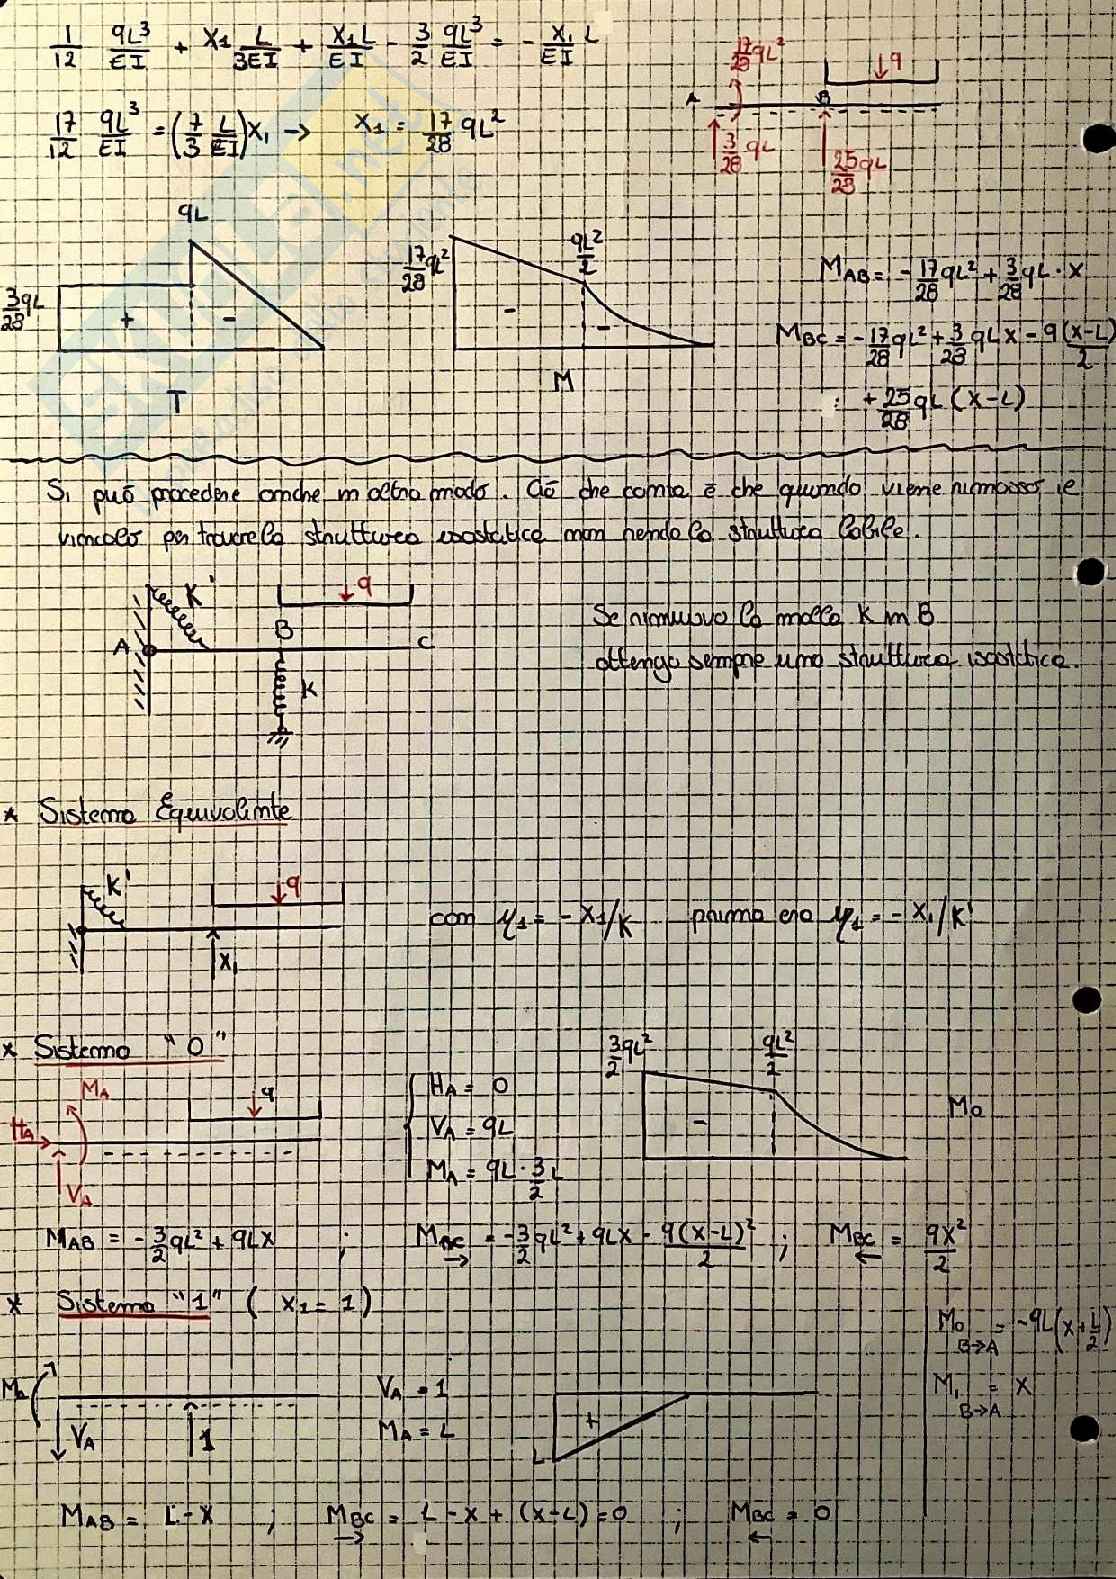 1/12 qL³/EI + X1 L/3EI + X1L/EI - 3/2 qL³/EI = - X1 L/EI
17/12 qL³/EI = (7/3 L/EI)X1 → X1 = 17/28 qL²
17/28 qL²
q
A
B
3/28 qL
25/28 qL
qL
3/28 qL
+
-
T
17/28 qL²
qL²/2
-
-
M
MAB = - 17/28 qL² + 3/28 qL · X
MBC = - 17/28 qL² + 3/28 qLX - q(X-L)/2
+ 25/28 qL (X-L)
Si può procedere anche in altro modo. Ciò che conta è che quando viene rimosso il
vincolo per trovare la struttura isostatica non rendo la struttura labile.
K'
q
A
B
C
K
Se rimuovo la molla K in B
ottengo sempre una struttura isostatica.
* Sistema Equivalente
K'
q
X1
con η1 = - X1/K prima era φ1 = - X1/K'
* Sistema "0"
MA
HA
VA
q
HA = 0
VA = qL
MA = qL · 3/2 L
3/2 qL²
qL²/2
-
M0
MAB = - 3/2 qL² + qLX ; MBC → = - 3/2 qL² + qLX - q(X-L)²/2 ; MBC ← = qX²/2
* Sistema "1" ( X1 = 1 )
M0 B→A = -qL(X+L/2)
M1 B→A = X
MA
VA
1
VA = 1
MA = L
+
L
MAB = L-X ; MBC → = L-X + (X-L) = 0 ; MBC ← = 0